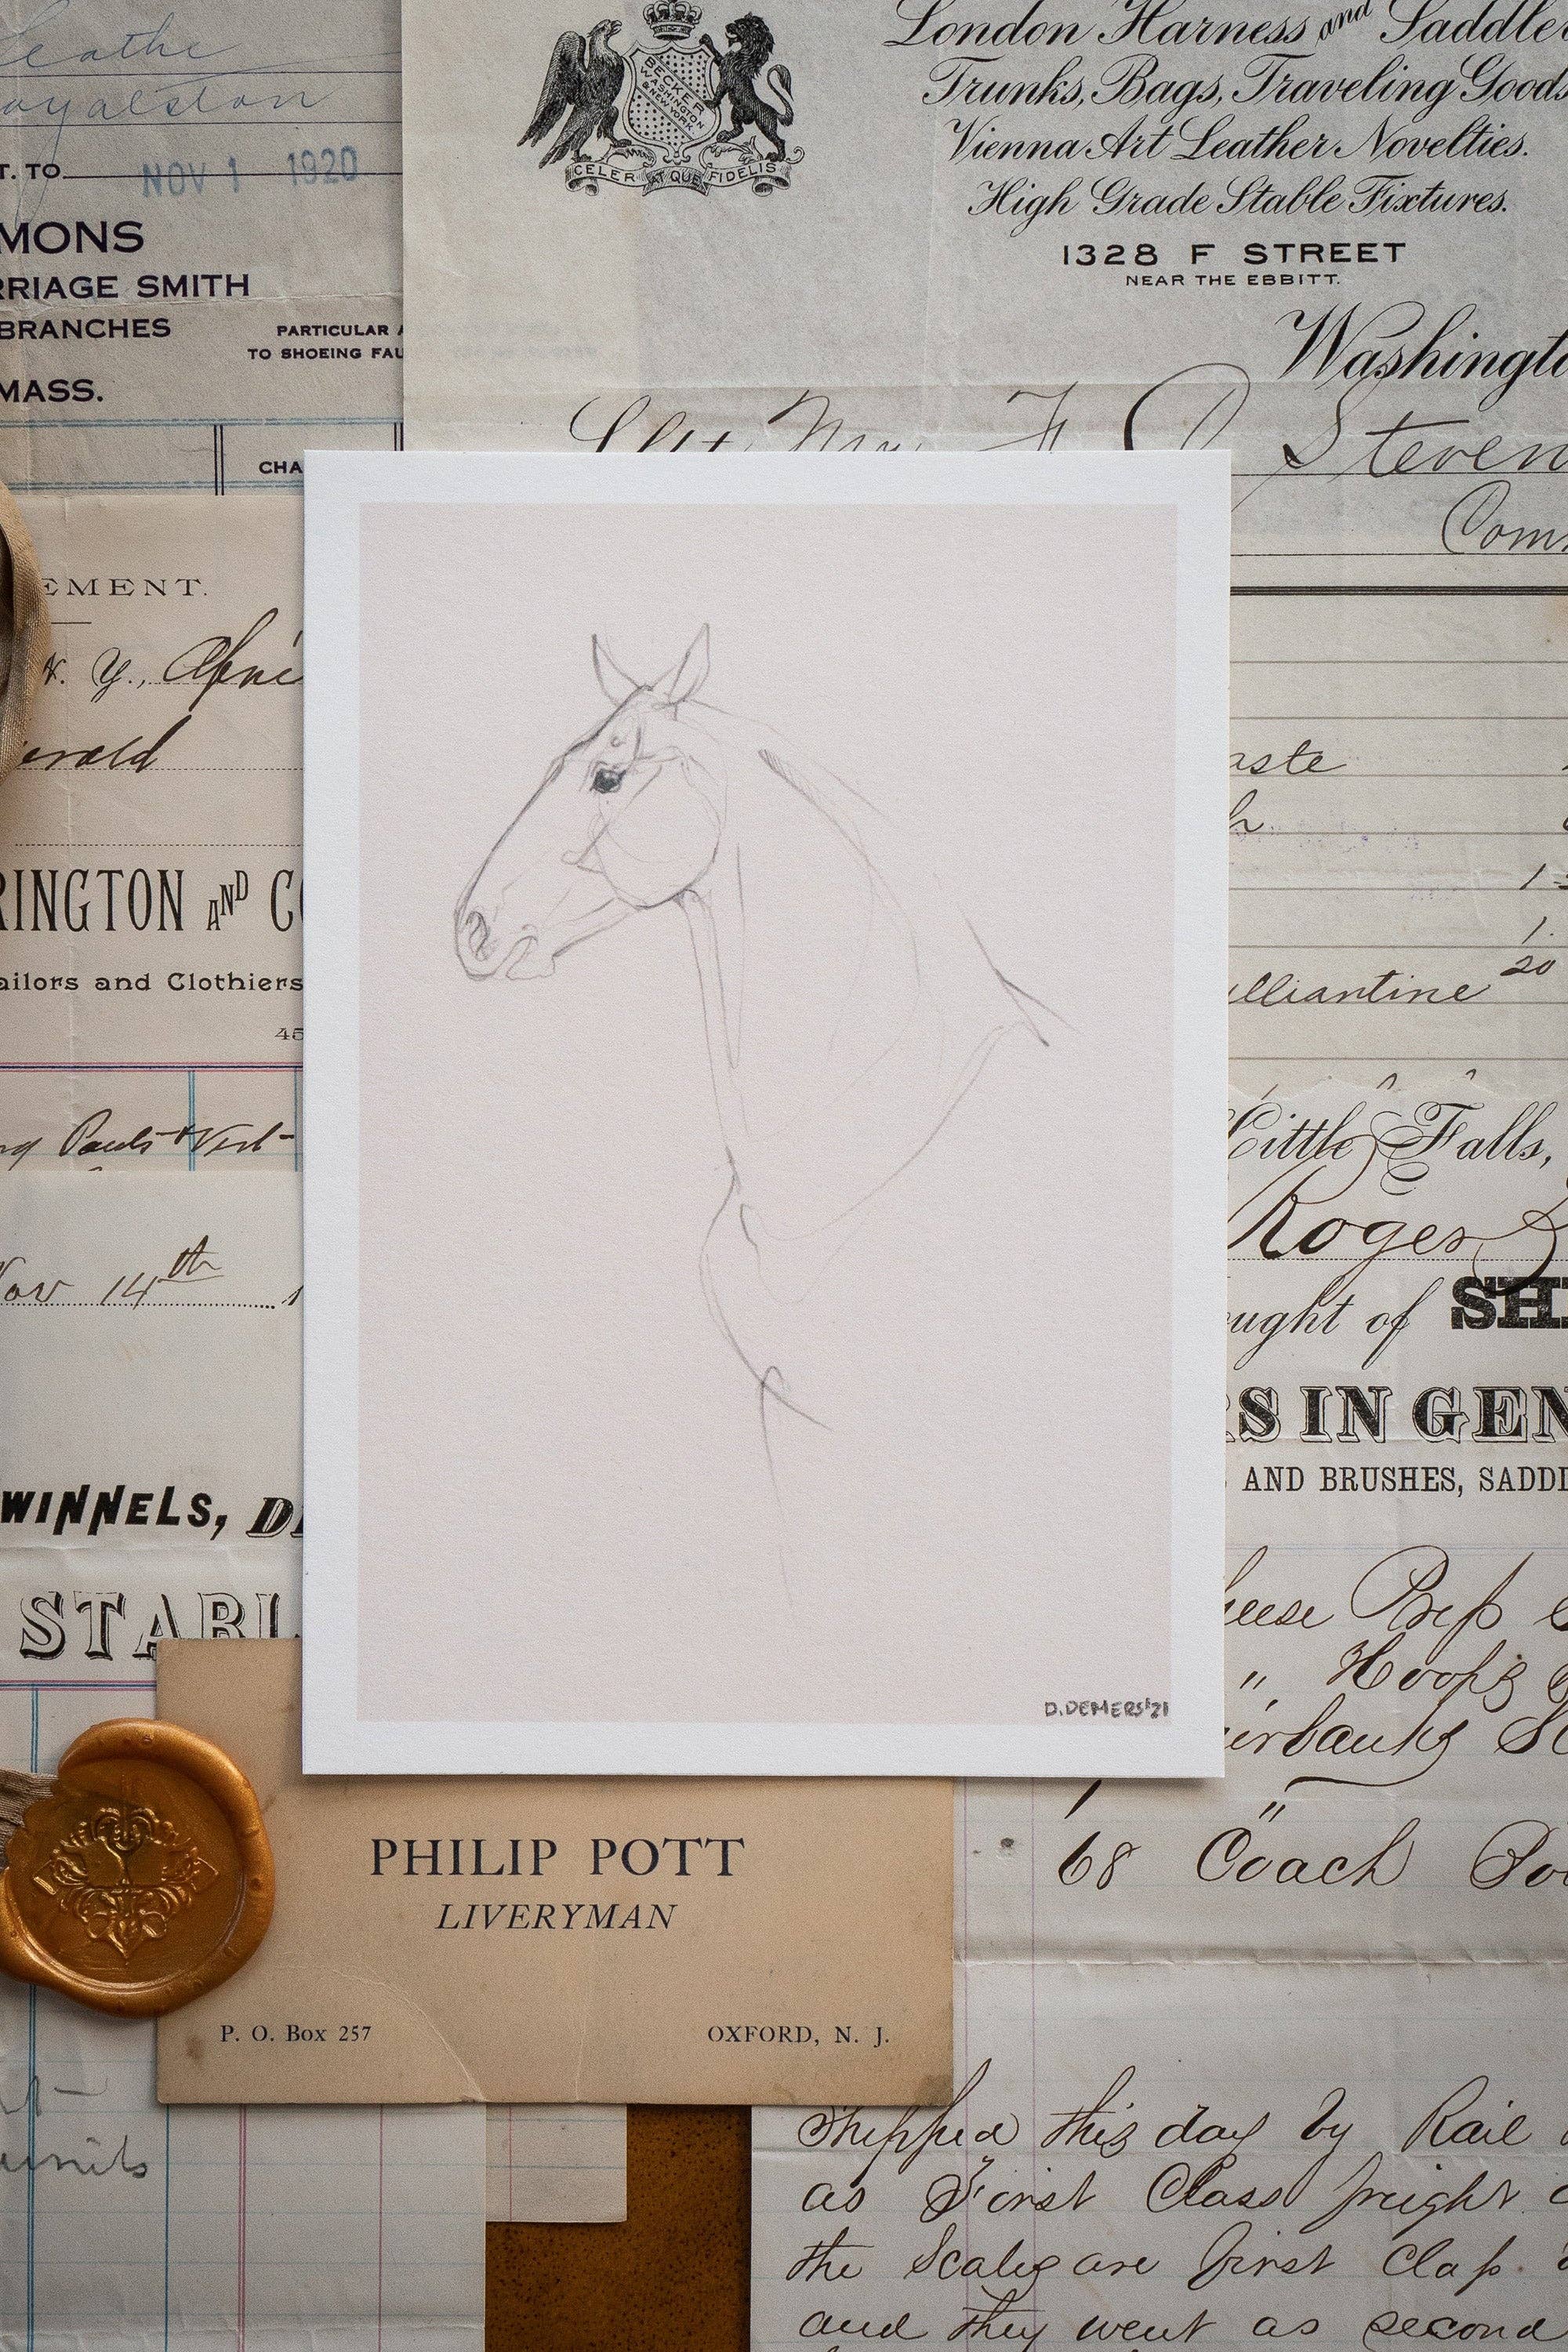 Leathe
Royalston
T. TO NOV 1 1920
MONS
RRIAGE SMITH
BRANCHES
PARTICULAR A
TO SHOEING FAU
MASS.
CHA
BECKER
WASHINGTON
& NEW YORK
CELER AT QUE FIDELIS
London Harness and Saddle
Trunks, Bags, Traveling Goods
Vienna Art Leather Novelties.
High Grade Stable Fixtures.
1328 F STREET
NEAR THE EBBITT.
Washingto
F D Steven
Com
EMENT.
N. Y.,
erald
RINGTON AND CO
ailors and Clothiers
45
Nov 14th 1
WINNELS, D
STABL
aste
h
1
1.
20
illiantine
Little Falls,
Roger
ught of SH
RS IN GEN
AND BRUSHES, SADDL
heese
" Hoops
airbanks
"
68 Coach
D. DEMERS '21
PHILIP POTT
LIVERYMAN
P. O. Box 257
OXFORD, N. J.
units
Shipped this day by Rail
as First Class freight
the Scales are first Class
and they went as second